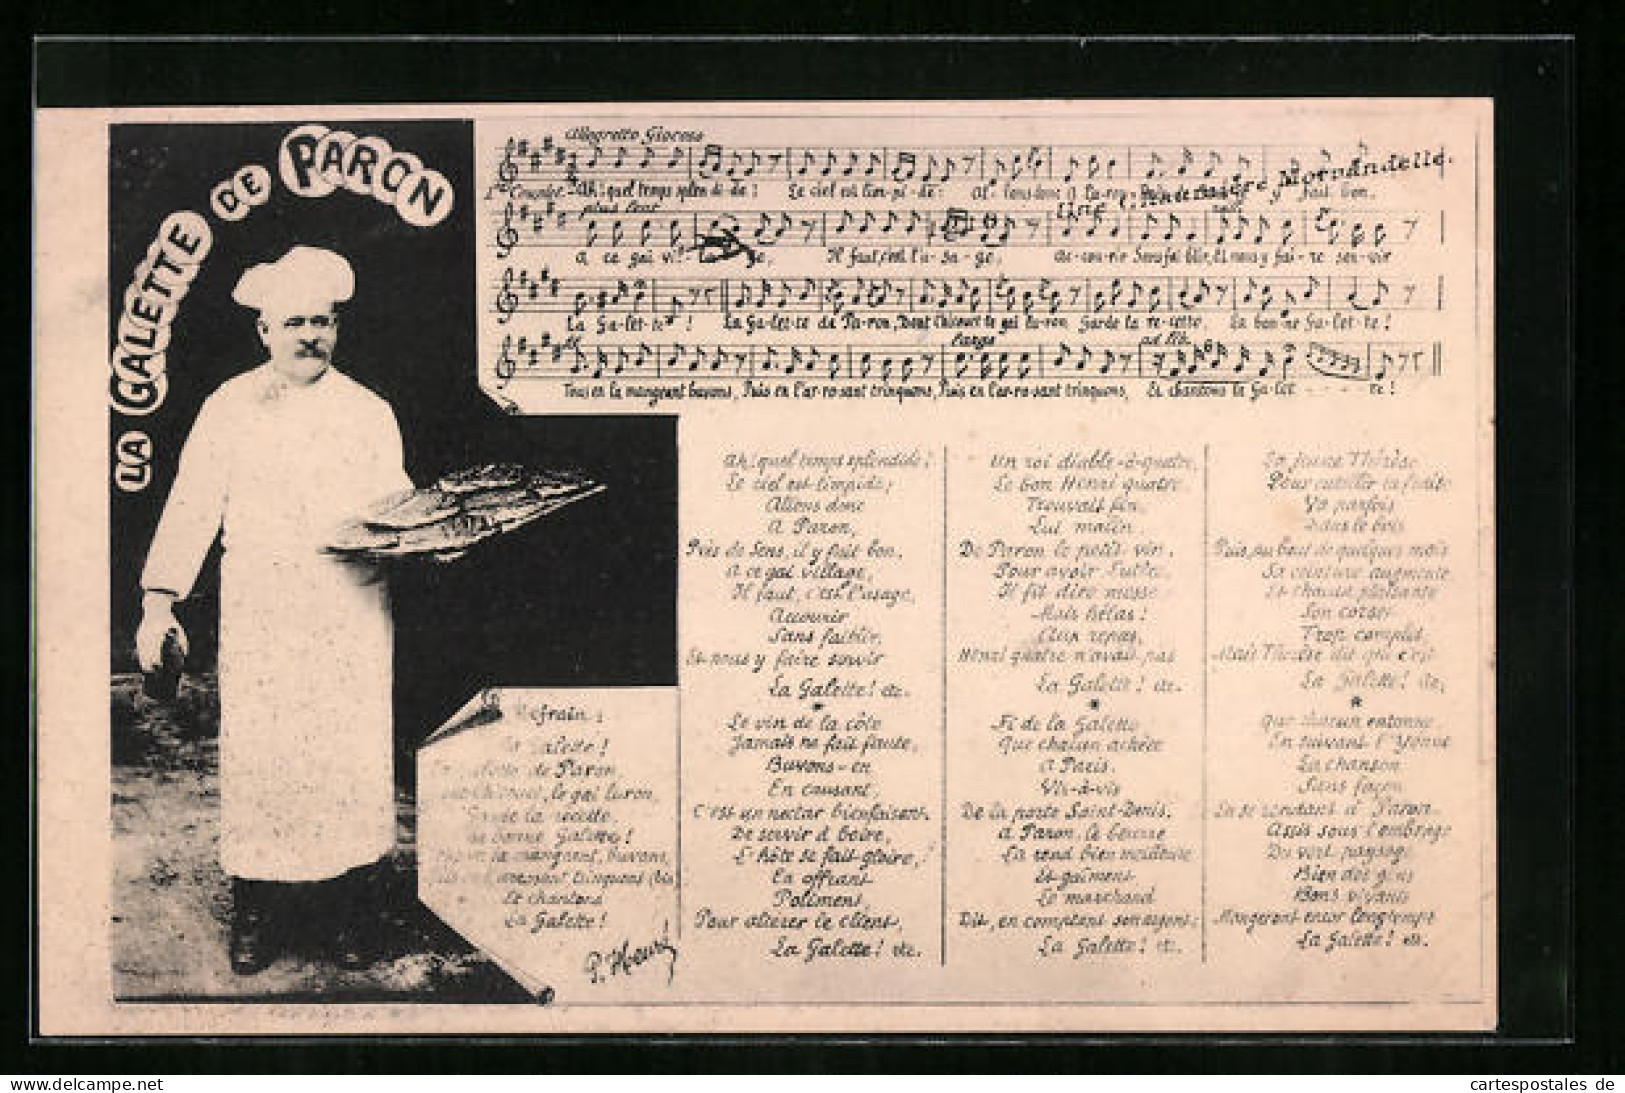 LA GALETTE DE PARON
Allegretto Giocoso
1er Couplet. Ah! quel temps splen-di-de! Le ciel est lim-pi-de: Al-lons donc à Pa-ron, Près de fait bon.
Une Morvandelle.
plus lent
A ce gai vil-la-ge, Il faut, c'est l'u-sa-ge, Ac-cou-rir Sans fai-blir, Et nous y fai-re ser-vir
La Ga-let-te! La Ga-let-te de Pa-ron, Dont le gai lu-ron, Garde la re-cette, La bon-ne Ga-let-te!
Largo ad lib.
Tous en la mangeant buvons, Puis en l'ar-ro-sant trinquons, Puis en l'ar-ro-sant trinquons, Et chantons la Ga-let - - - te!
Refrain:
La Galette!
La Galette de Paron,
le gai luron,
Garde la recette,
La bonne Galette!
la mangeant, buvons,
arrosant trinquons (bis)
Et chantons
La Galette!
Ah! quel temps splendide!
Le ciel est limpide;
Allons donc
A Paron,
Près de Sens, il y fait bon.
A ce gai village,
Il faut, c'est l'usage,
Accourir
Sans faiblir,
Et nous y faire servir
La Galette! etc.
*
Le vin de la côte
Jamais ne fait faute,
Buvons-en
En causant,
C'est un nectar bienfaisant.
De servir à boire,
L'hôte se fait gloire,
En offrant
Poliment,
Pour attirer le client,
La Galette! etc.
Un roi diable-à-quatre,
Le bon Henri quatre,
Trouvait fin,
Lui malin,
De Paron le petit vin.
Pour avoir Lutèce,
Il fit dire messe
Mais hélas!
Aux repas,
Henri quatre n'avait pas
La Galette! etc.
*
Fi de la Galette
Que chacun achète
A Paris.
Vis-à-vis
De la porte Saint-Denis.
A Paron, le beurre
La rend bien meilleure
Et gaîment
Le marchand
Dit, en comptant son argent:
La Galette! etc.
La jeune Thérèse
Pour cueillir la fraise
Va parfois
Dans le bois
Puis, au bout de quelques mois
Sa ceinture augmente
Et chacun plaisante
Son corset
Trop complet,
Mais Thérèse dit que c'est
La Galette! etc.
*
Que chacun entonne,
En suivant l'Yonne
La chanson
Sans façon
En se rendant à Paron
Assis sous l'ombrage
Du vert paysage
Bien des gens
Bons vivants
Mangeront encor longtemps
La Galette! etc.
cartespostales de